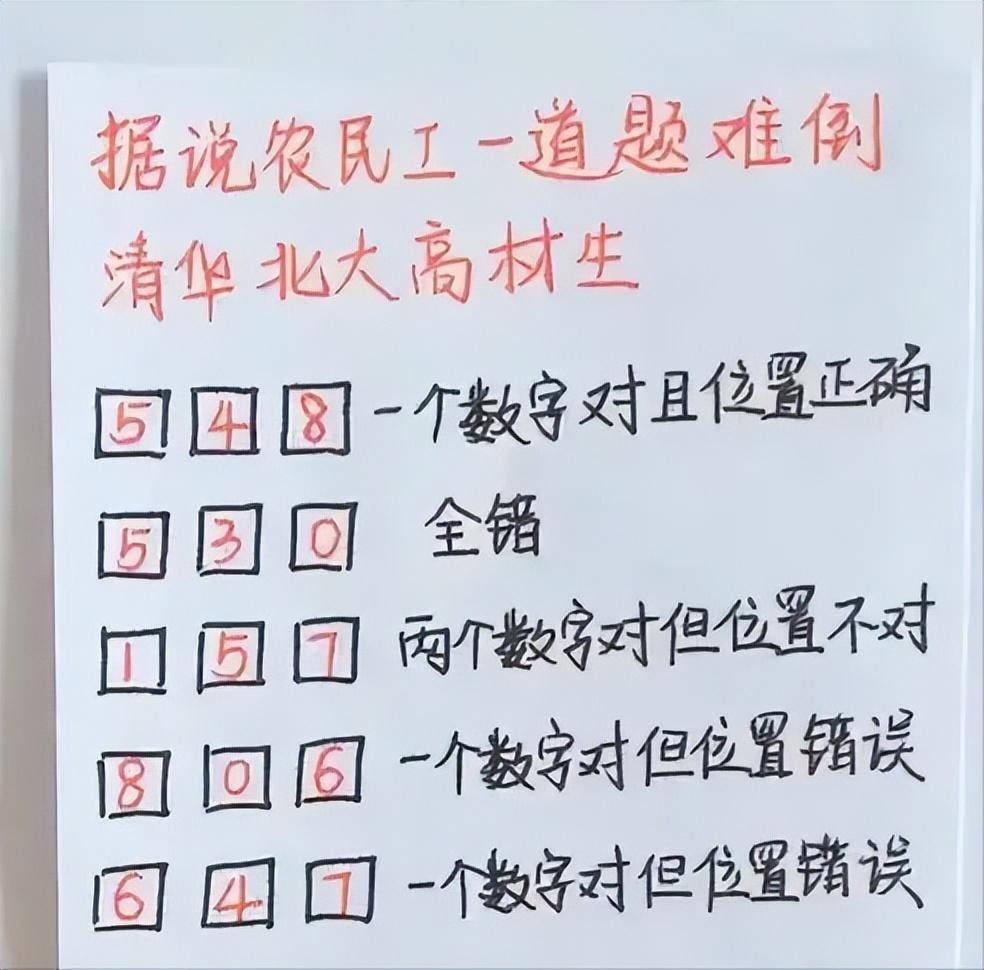 据说农民工一道题难倒
清华北大高材生
5 4 8 一个数字对且位置正确
5 3 0 全错
1 5 7 两个数字对但位置不对
8 0 6 一个数字对但位置错误
6 4 7 一个数字对但位置错误